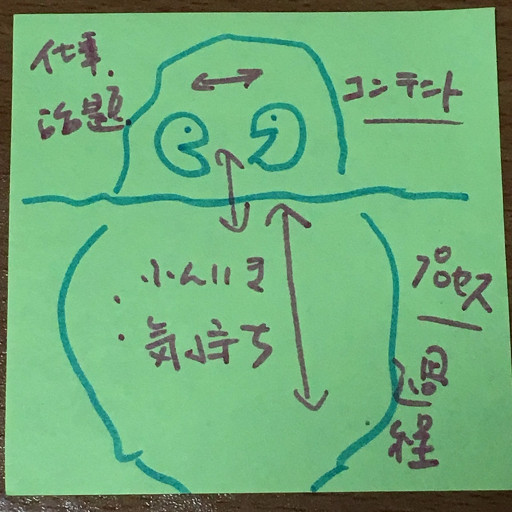 仕事、
話題
コンテント
・ふんいき
・気持ち
プロセス
過程